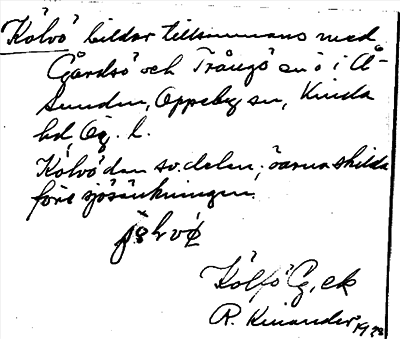 Kölvö bildar tillsammans med
Gårdsö och Trångö en ö i Å-
sunden, Oppeby sn, Kinda
hd, Ög. l.
Kölvö den sv. delen; öarna skilda
före sjösänkningen.
Kölfö G, ek
R. Kinander 19